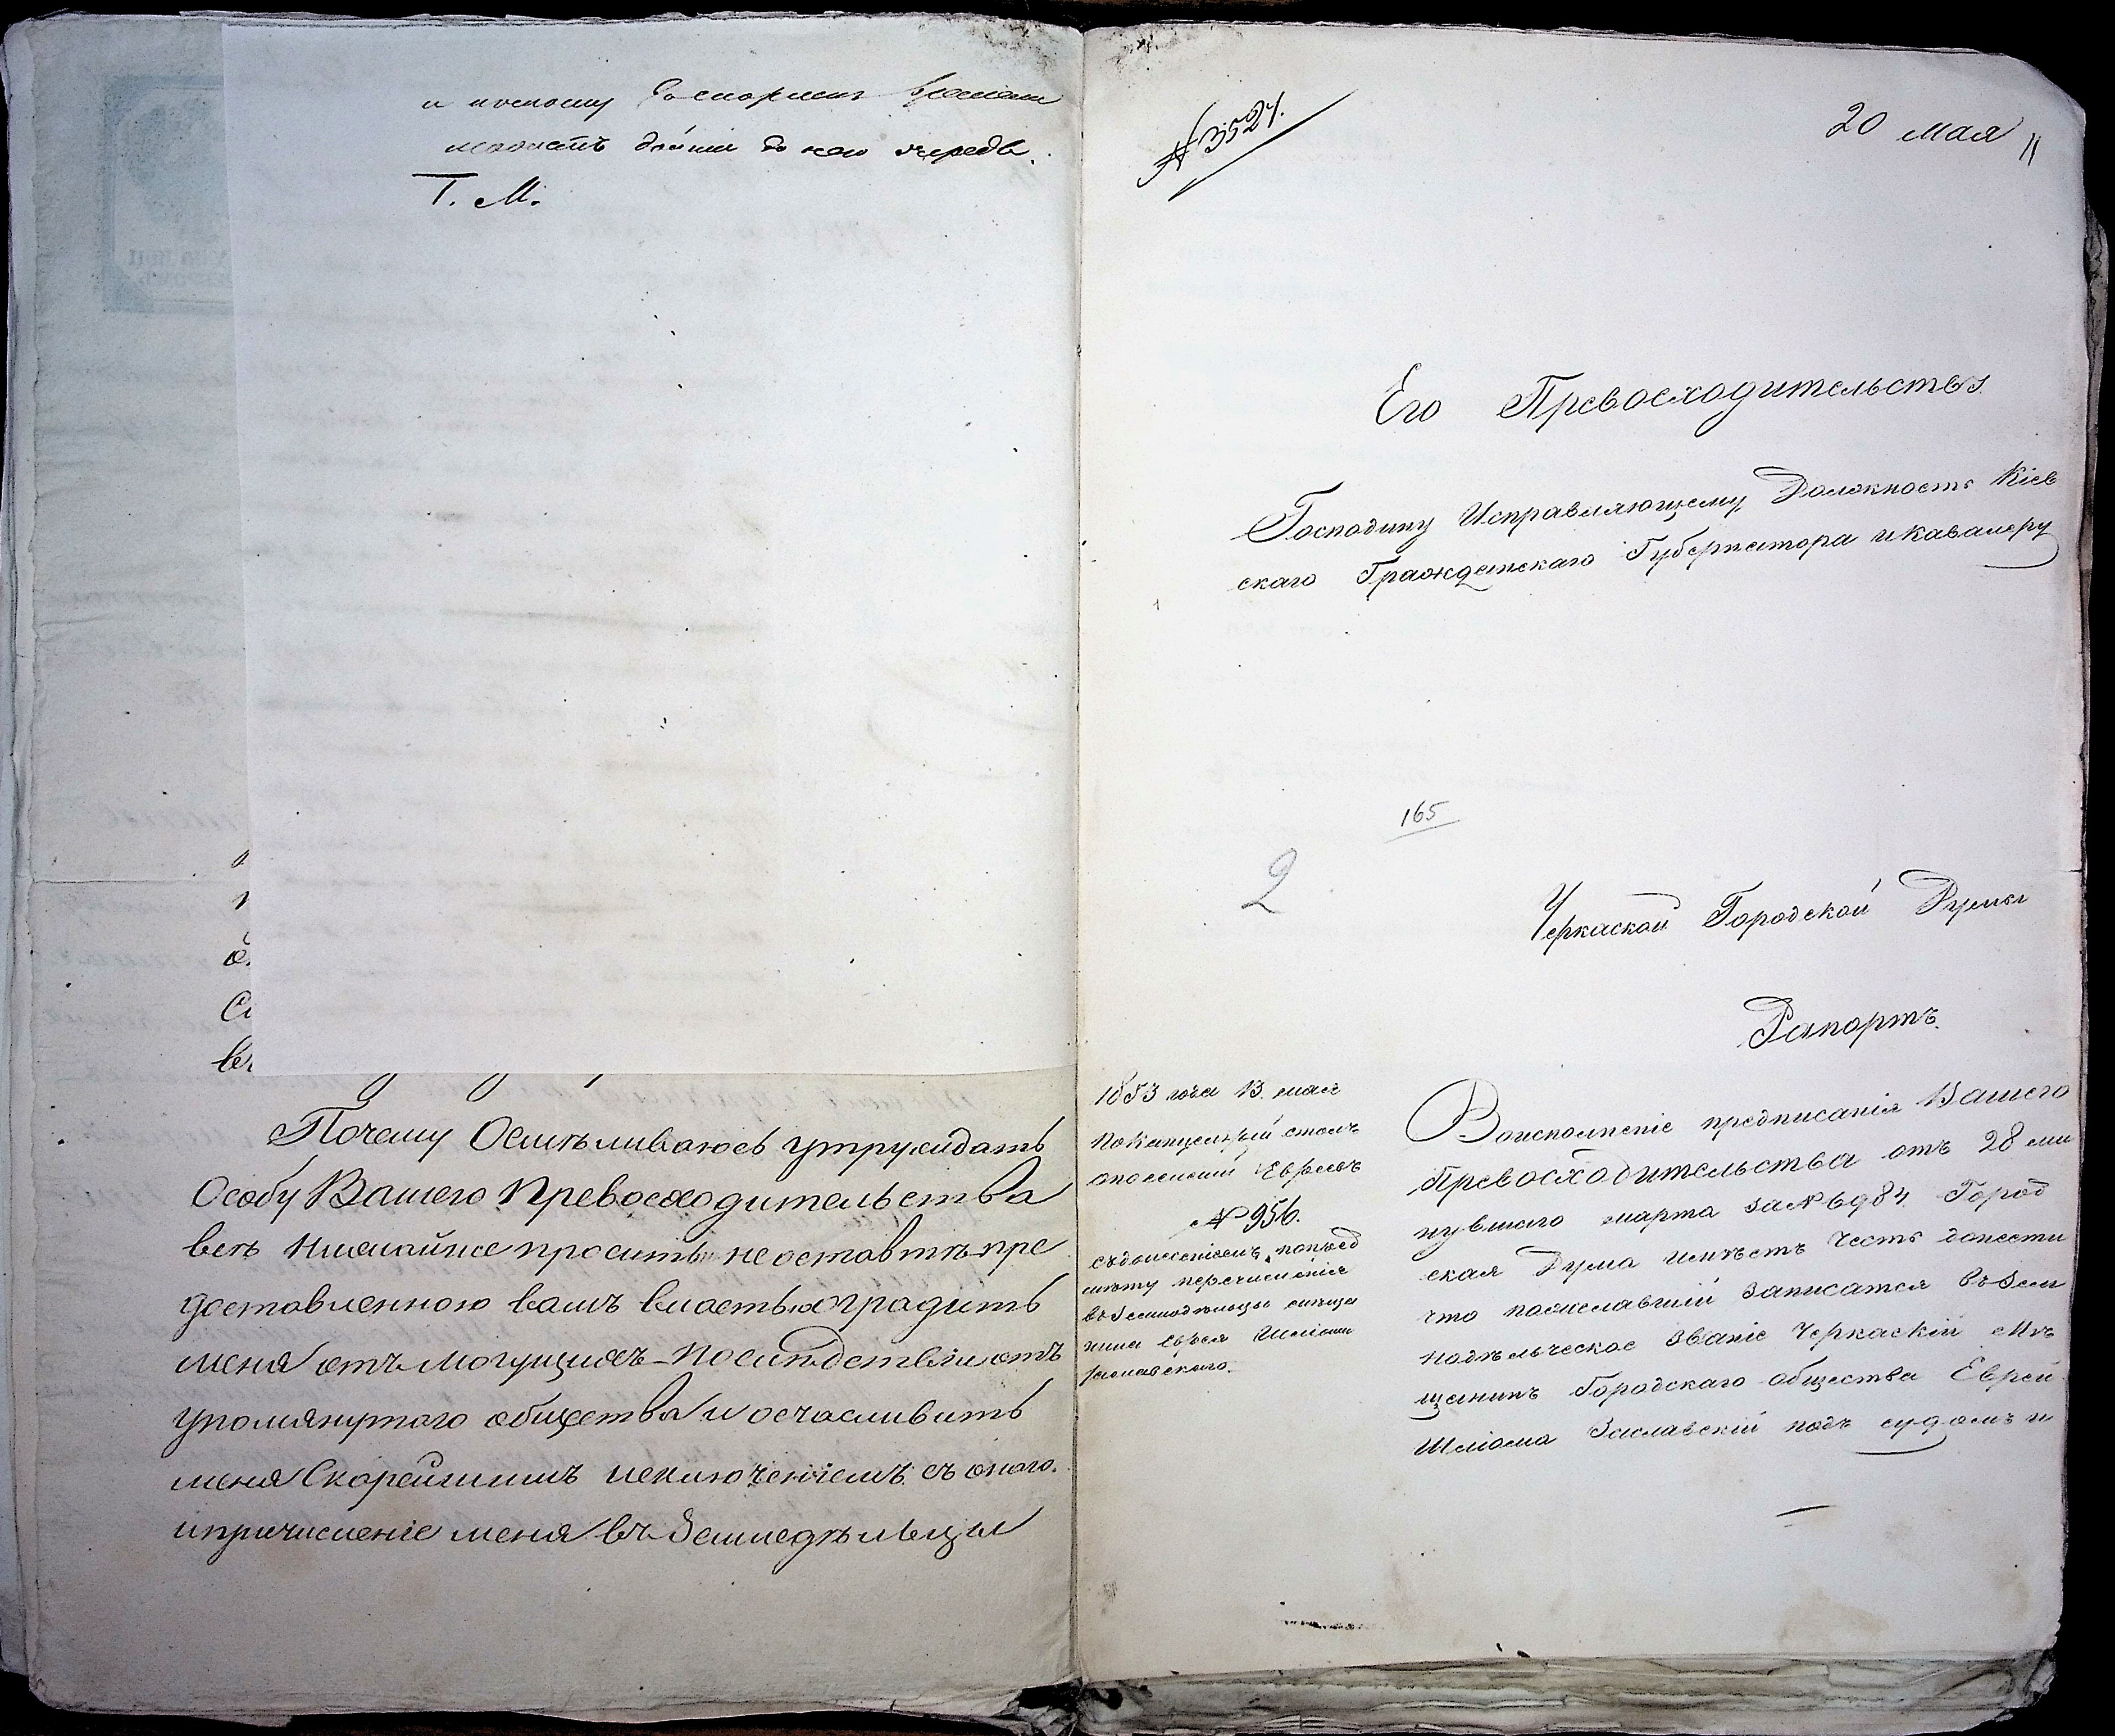 и поэтому въ скоромъ времени
можетъ дойти до него очередь.
Т. М.
Почему Осмѣливаюсь утруждать
Особу Вашего Превосходительства
всенижайше просить не оставтѣ пре
доставленною вамъ властью оградить
меня отъ могущихъ последствiи отъ
упомянутого общества и осчасливить
меня Скорейшимъ исключенiемъ съ оного.
и причисленiе меня въ Землєдѣльцы
№ 3524.
20 мая
11
Его Превосходительству
Господину Исправляющему Должность Кіев
скаго Гражданскаго Губернатора и Кавалеру
165
2
Черкаской Городской Думы
Рапортъ.
1853 года 13 мая
По Канцелярiи столъ
Евреевъ
№ 956.
съ донесенiемъ попред
мѣту перечисленiя
въ Земледѣльцы
Еврея Шліоми
Заславскаго.
Воисполненіе предписанія Вашего
Превосходительства отъ 28 ми
нувшаго марта за № 6984. Город
ская Дума имѣетъ честь донести
что пожелавшій записатся въ Зем
ледѣльческое званіе Черкаскій мѣ
щанинъ Городскаго общества Еврей
Шліома Заславскій подъ судомъ и